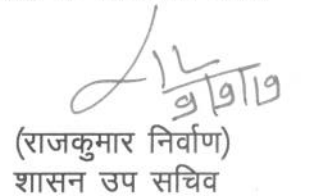 (राजकुमार निर्वाण)
शासन उप सचिव